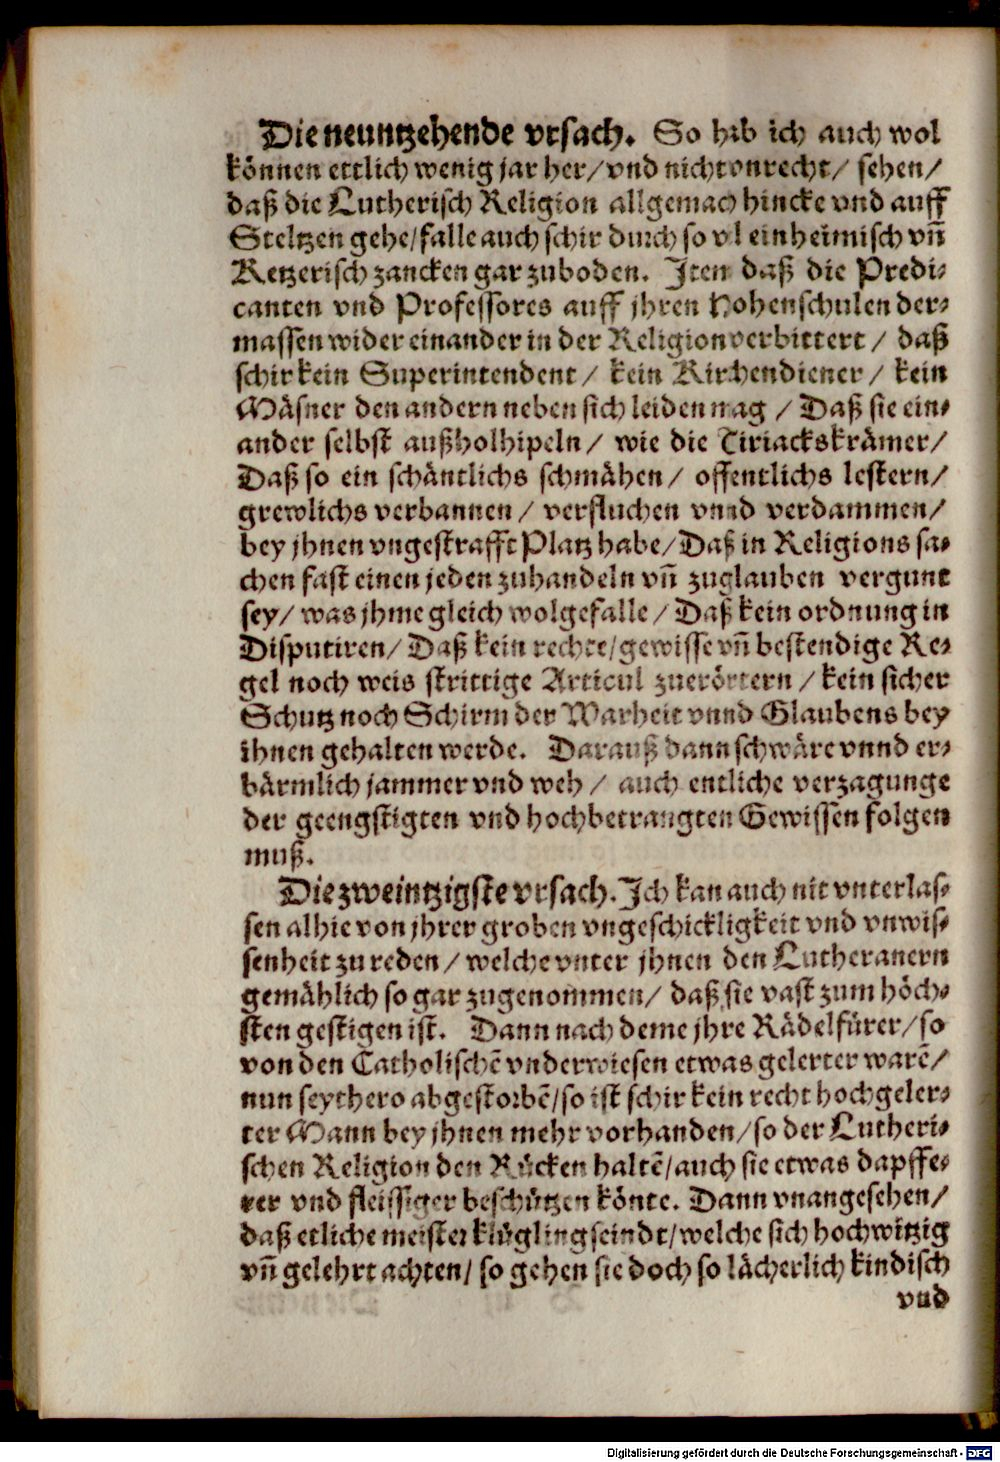 Die neuntzehende vrsach. So hab ich auch wol
können ettlich wenig jar her/ vnd nicht vnrecht/ sehen/
daß die Lutherisch Religion allgemach hincke vnd auff
Steltzen gehe/ falle auch schir durch so vil einheimisch vñ
Ketzerisch zancken gar zuboden. Item daß die Predi-
canten vnd Professores auff jhren Hohenschulen der-
massen wider einander in der Religion verbittert/ daß
schir kein Superintendent/ kein Kirchendiener/ kein
Mäsner den andern neben sich leiden mag/ Daß sie ein-
ander selbst außholhipeln/ wie die Tiriackskrämer/
Daß so ein schäntlichs schmähen/ offentlichs lestern/
grewlichs verbannen/ verfluchen vnnd verdammen/
bey jhnen vngestrafft Platz habe/ Daß in Religions sa-
chen fast einen jeden zuhandeln vñ zuglauben vergunt
sey/ was jhme gleich wolgefalle/ Daß kein ordnung in
Disputiren/ Daß kein rechte/ gewisse vñ bestendige Re-
gel noch weis strittige Articul zuerörtern/ kein sicher
Schutz noch Schirm der Warheit vnnd Glaubens bey
ihnen gehalten werde. Darauß dann schwäre vnnd er-
bärmlich jammer vnd weh/ auch entliche verzagunge
der geengstigten vnd hochbetrangten Gewissen folgen
muß.
Die zweintzigste vrsach. Ich kan auch nit vnterlas-
sen alhie von jhrer groben vngeschickligkeit vnd vnwis-
senheit zu reden/ welche vnter jhnen den Lutheranern
gemählich so gar zugenommen/ daß sie vast zum höch-
sten gestigen ist. Dann nach deme jhre Rädelfürer/ so
von den Catholischẽ vnderwiesen etwas gelerter warẽ/
nun seythero abgestorbẽ/ so ist schir kein recht hochgeler-
ter Mann bey jhnen mehr vorhanden/ so der Lutheri-
schen Religion den Rücken haltẽ/ auch sie etwas dapffe-
rer vnd fleissiger beschützen könte. Dann vnangesehen/
daß etliche meister klügling seindt/ welche sich hochwitzig
vñ gelehrt achten/ so gehen sie doch so lächerlich kindisch
vnd
Digitalisierung gefördert durch die Deutsche Forschungsgemeinschaft - DFG